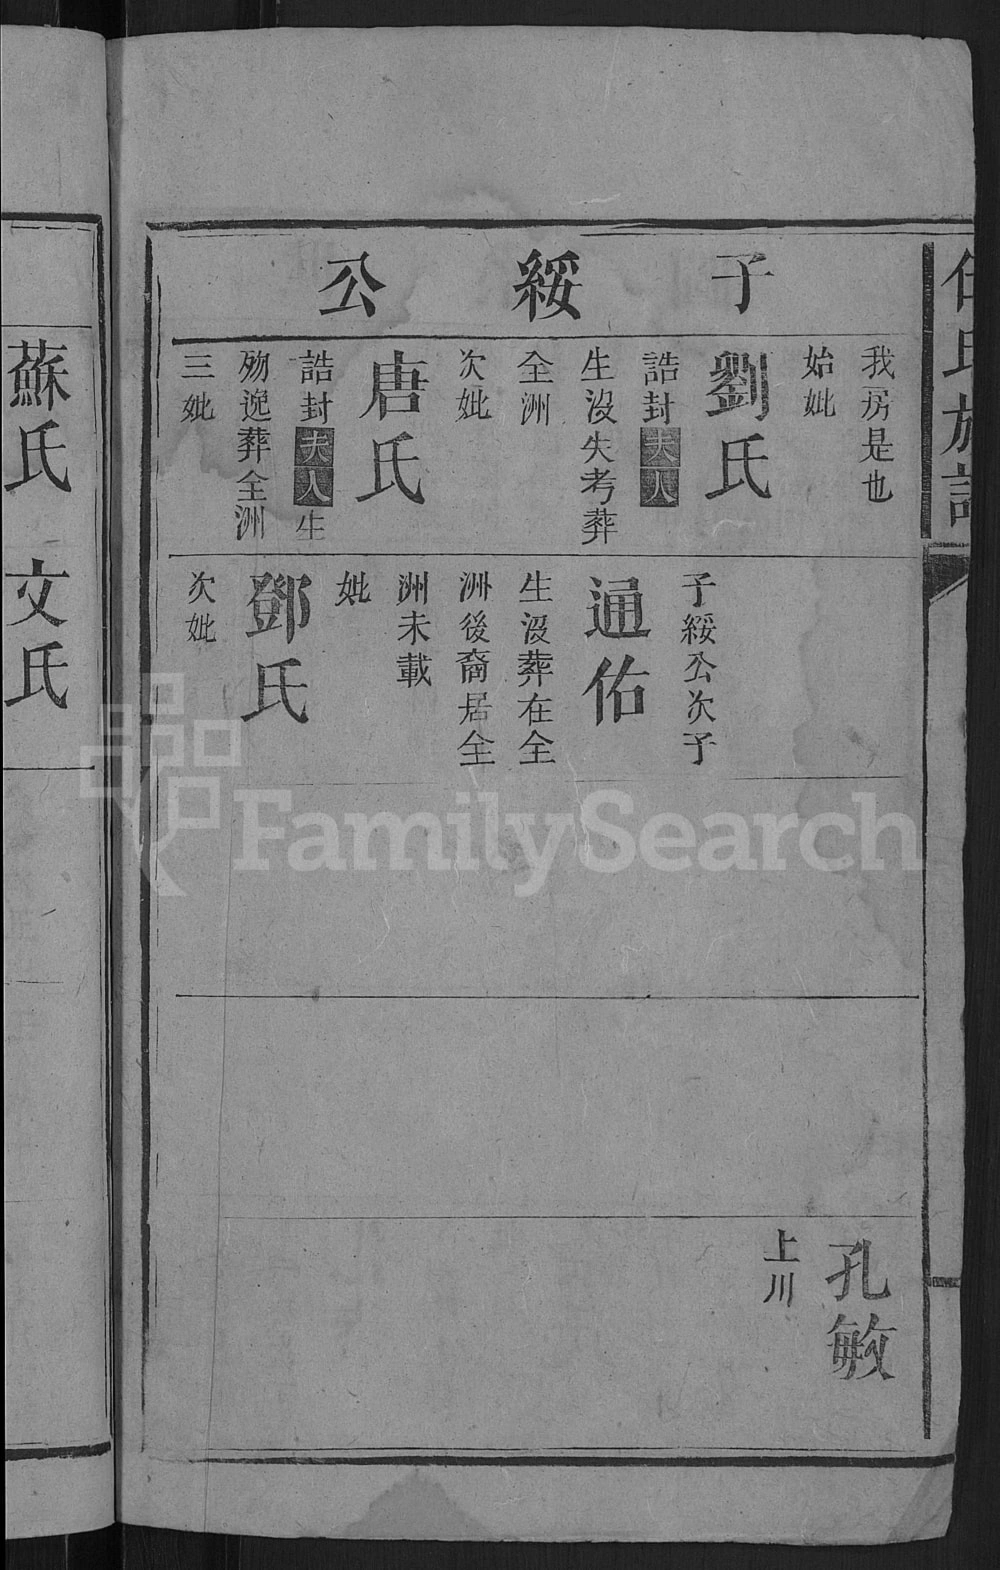 氏族
子綏公
我房是也
始妣
劉氏
誥封夫人
生沒失考葬
全洲
次妣
唐氏
誥封夫人生
歿迯葬全洲
三妣
子綏公次子
通佑
生沒葬在全
洲後裔居全
洲未載
妣
鄧氏
次妣
孔敏
上川
蘇氏
文氏
FamilySearch